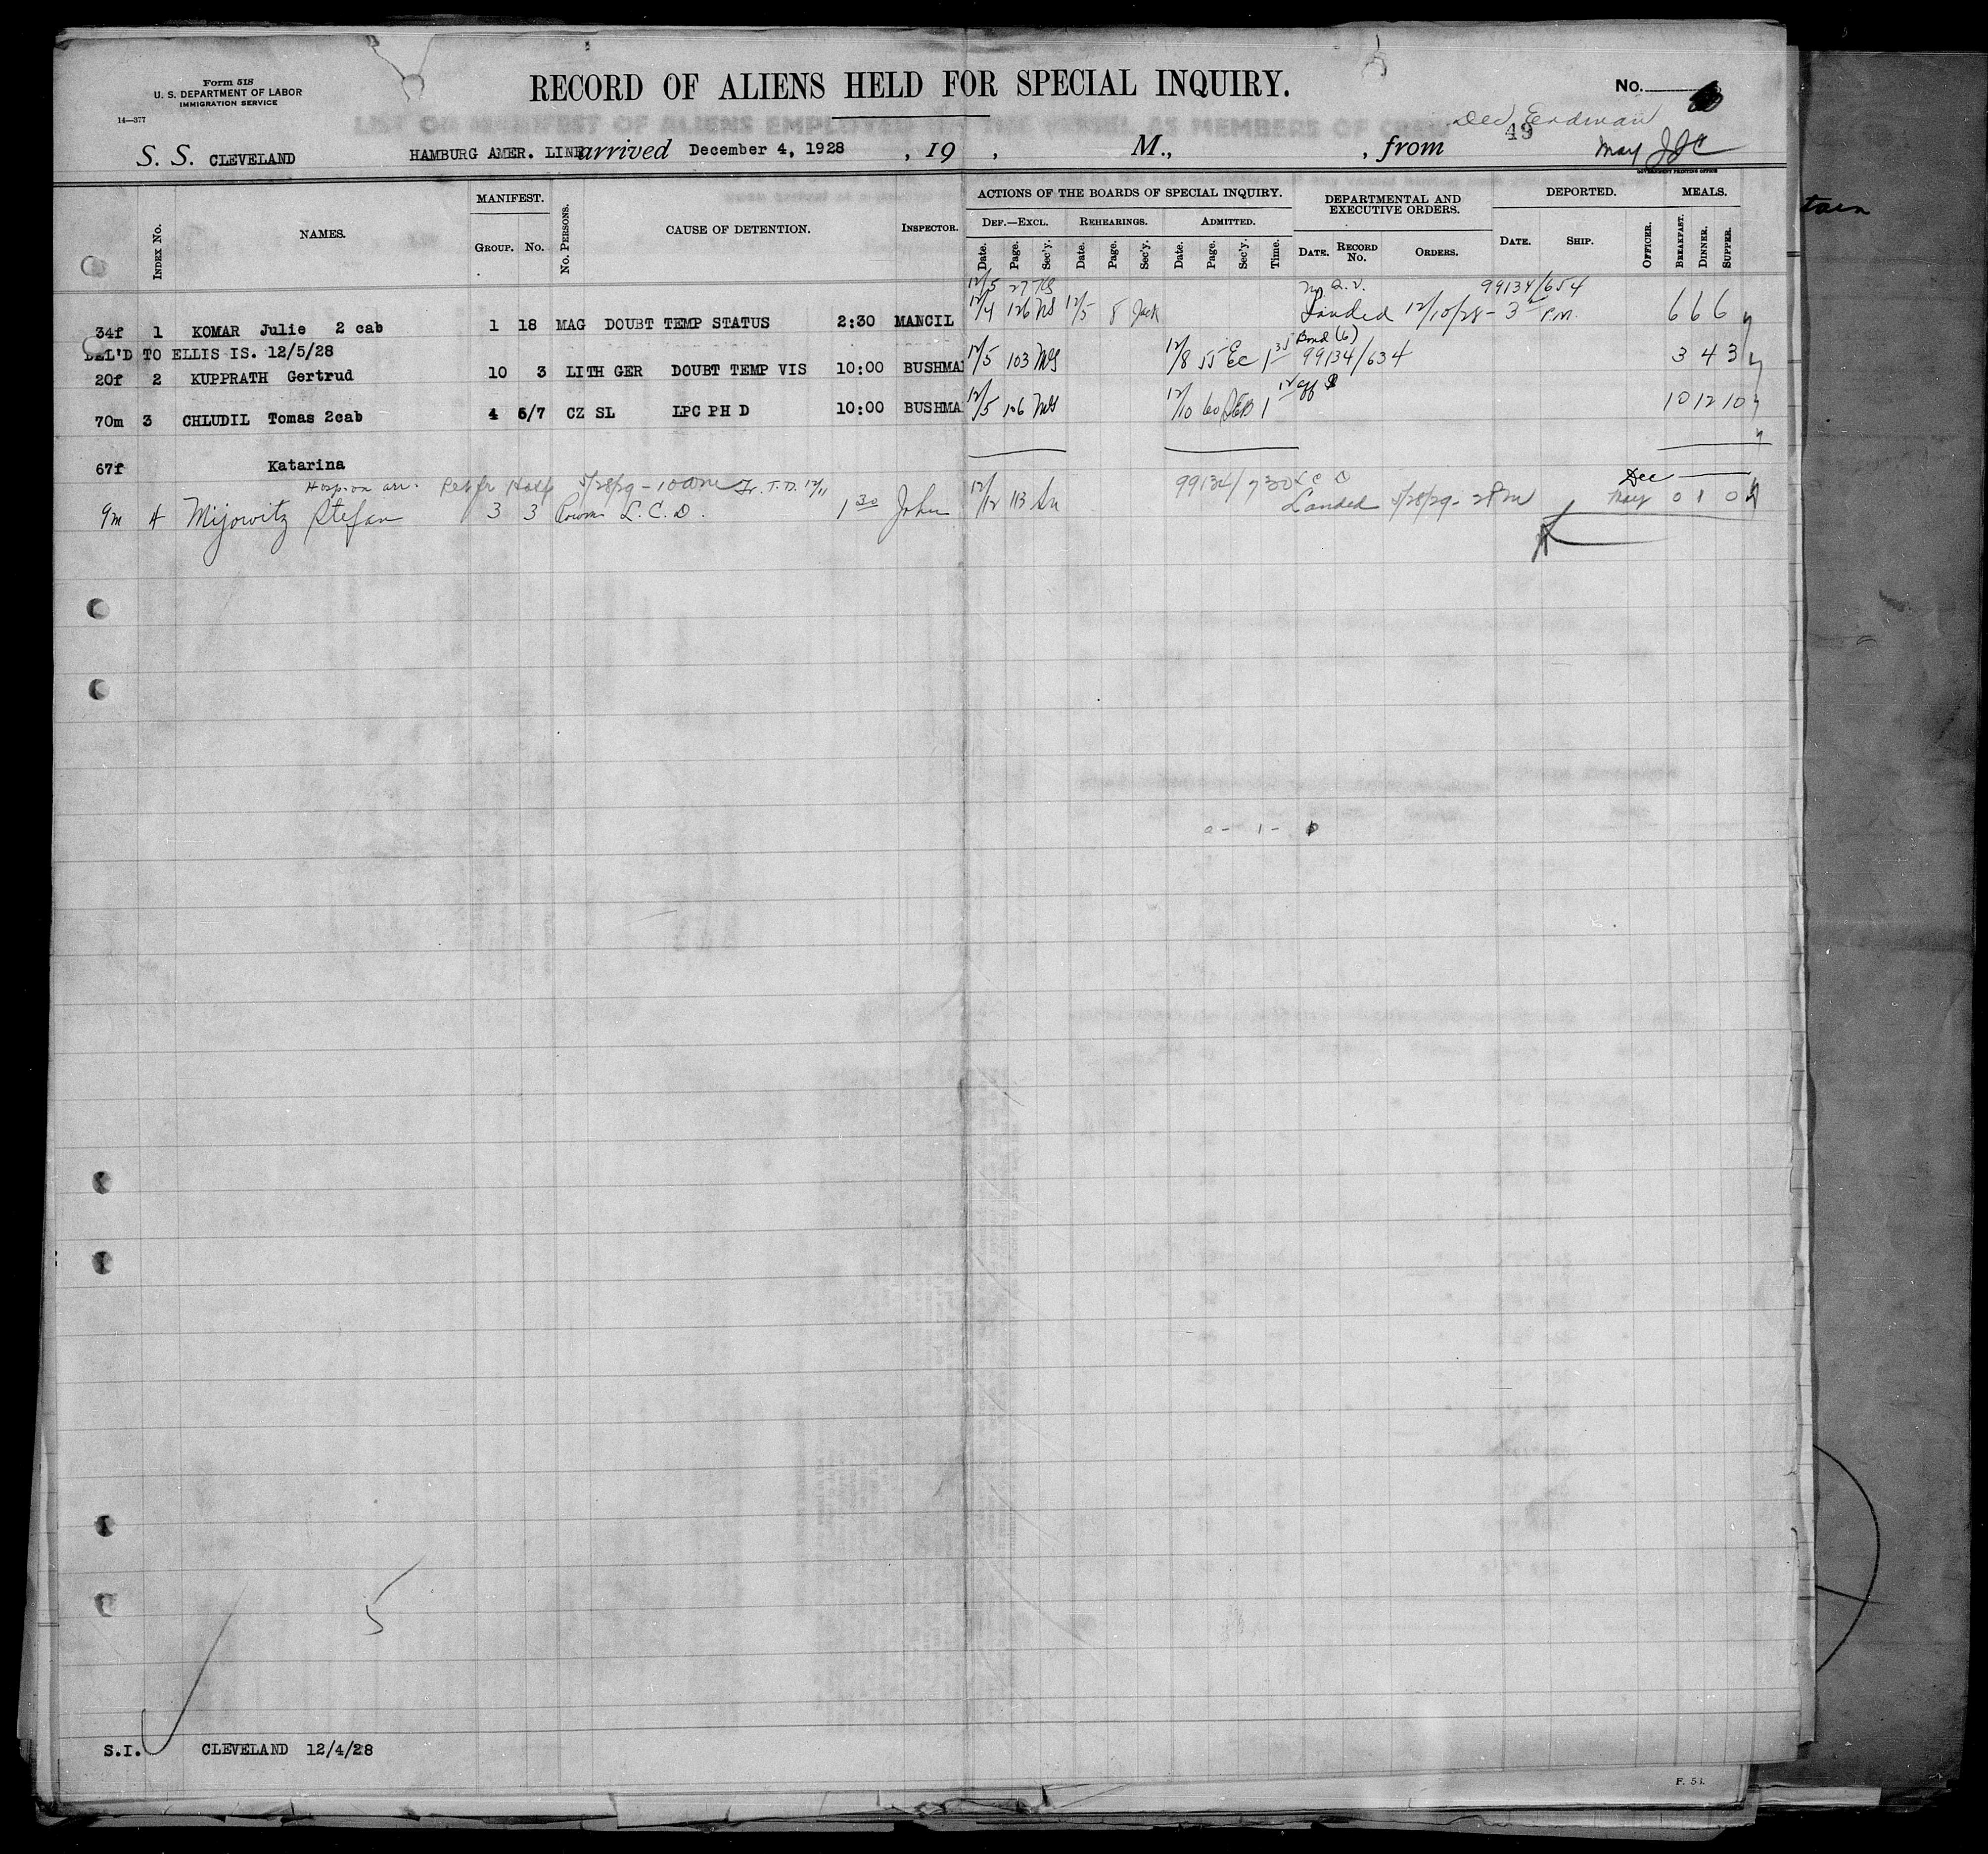 Form 518
U. S. DEPARTMENT OF LABOR
IMMIGRATION SERVICE
14—377
RECORD OF ALIENS HELD FOR SPECIAL INQUIRY.
No.
LIST OR MANIFEST OF ALIENS EMPLOYED ON THE VESSEL AS MEMBERS OF CREW
Dec Erdman
49
S. S. CLEVELAND HAMBURG AMER. LINE arrived December 4, 1928 , 19 , M., , from May JJC
GOVERNMENT PRINTING OFFICE
INDEX No. NAMES. MANIFEST. GROUP. No. No. PERSONS. CAUSE OF DETENTION. INSPECTOR. ACTIONS OF THE BOARDS OF SPECIAL INQUIRY. DEF.—EXCL. Date. Page. Sec'y. REHEARINGS. Date. Page. Sec'y. ADMITTED. Date. Page. Sec'y. Time. DEPARTMENTAL AND EXECUTIVE ORDERS. DATE. RECORD No. ORDERS. DEPORTED. DATE. SHIP. OFFICER. MEALS. BREAKFAST. DINNER. SUPPER.
12/5 27 99134/654
34f 1 KOMAR Julie 2 cab 1 18 MAG DOUBT TEMP STATUS 2:30 MANCIL 12/4 126 MS 12/5 8 Jack Landed 12/10/28 - 3 P.M. 6 6 6
DEL'D TO ELLIS IS. 12/5/28 Bond (6)
20f 2 KUPPRATH Gertrud 10 3 LITH GER DOUBT TEMP VIS 10:00 BUSHMA 12/5 103 MS 12/8 55 EC 1 35 99134/634 3 4 3
70m 3 CHLUDIL Tomas 2cab 4 6/7 CZ SL LPC PH D 10:00 BUSHMA 12/5 126 MS 12/10 60 1 10 12 10
67f Katarina
Hosp. on arr. Ret fr Hosp 5/28/29 - 10 am Fr. T.D. 12/11 Dec
9m 4 Mijowitz Stefan 3 3 L.C.D. 1 30 John 12/12 113 99134/730 L C D Landed 5/28/29 - 2 PM May 0 1 0
0 - 1 - 0
5
S.I. CLEVELAND 12/4/28
F. 51.